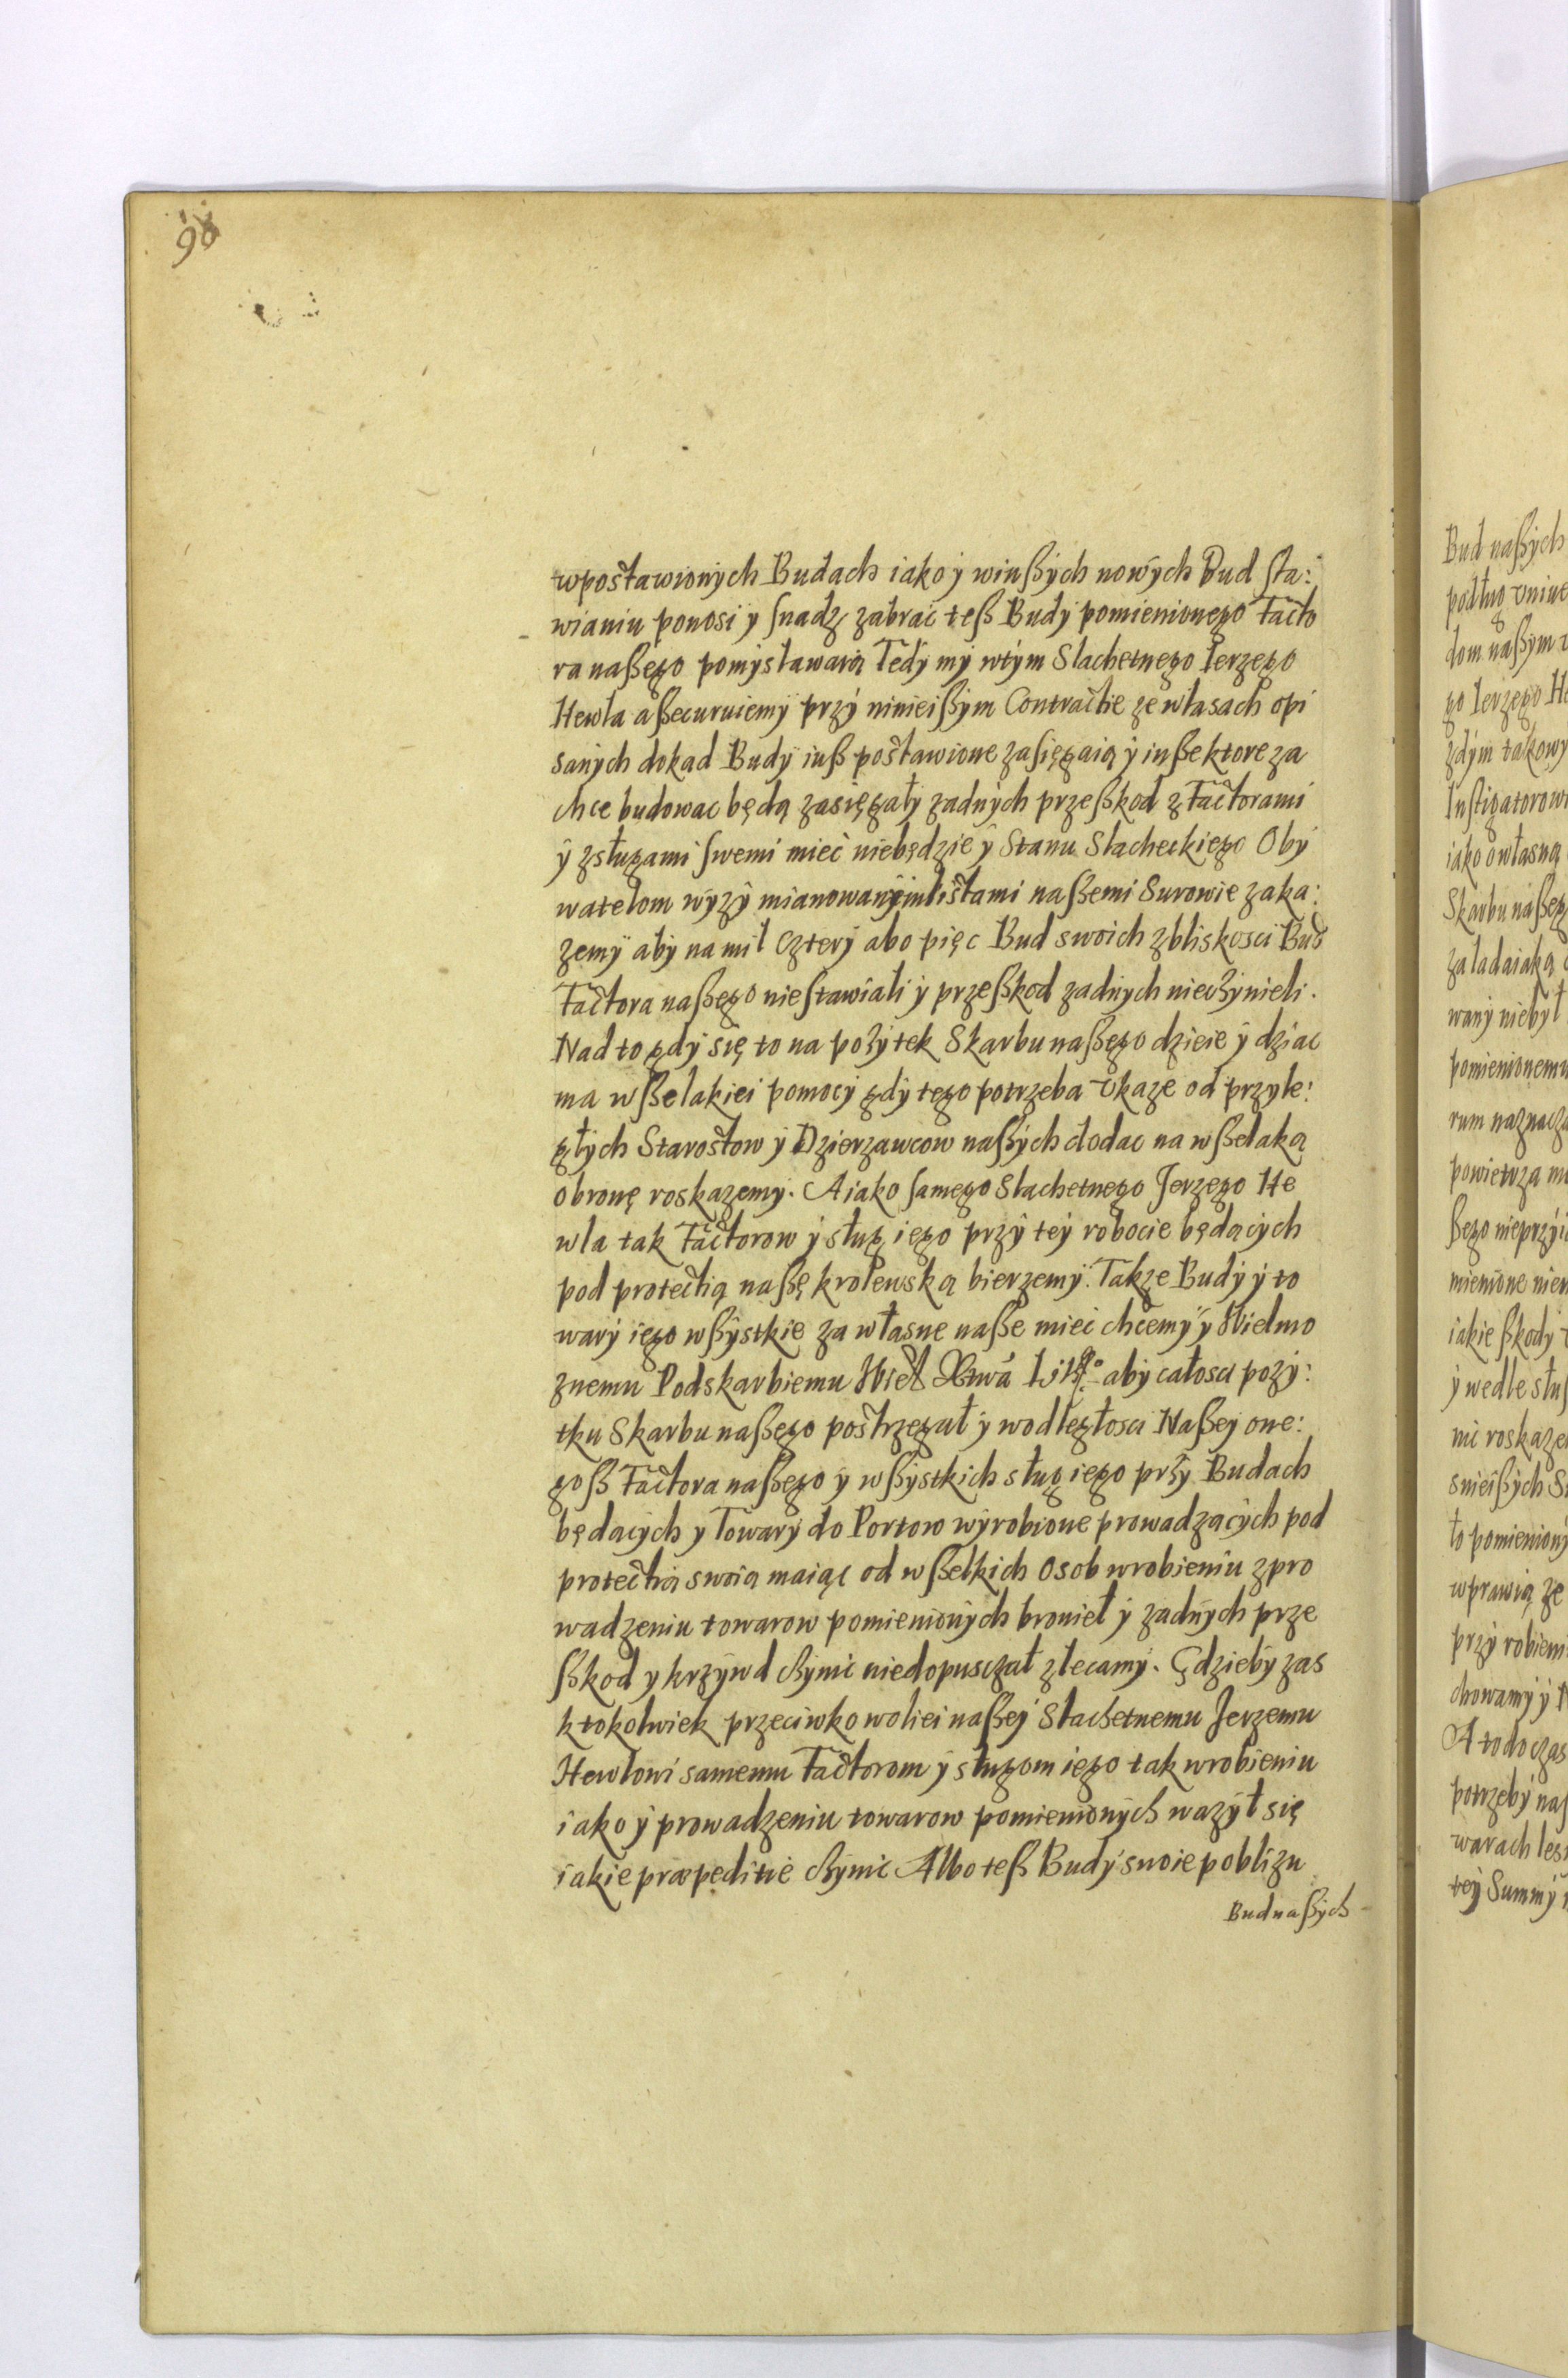 98
wpostawionych Budach iako y winßych nowych Bud sta:
wianiu ponosi y snadz zabrac teß Budy pomienionego Facto
ra naßego pomyslawaią Tedy my wtym Slachetnego Ierzego
Hewla aßecuruiemy przy ninieißym Contractie ze wlasach opi
sanych dokad Budy iuß postawione zasięgaią y inße ktore za
chce budowac będą zasięgały zadnych przeßkod z Factorami
y zsługami swemi mieć niebędzie y Stanu Slacheckiego Oby
watelom wyzy mianowanym listami naßemi Surowie zaka:
zemy aby na mil cztery abo pięc Bud swoich zbliskosci Bud
Factora naßego niestawiali y przeßkod zadnych nieczynieli.
Nad to gdy się to na pożytek Skarbu naßego dzieie y dziac
ma wßelakiei pomocy gdy tego potrzeba vkaze od przyle:
głych Starostow y Dzierzawcow naßych dodac na wßelaką
obronę roskazemy. A iako samego Slachetnego Jerzego He
wla tak Factorow y sług iego przy tey robocie będących
pod protectią naßę krolewską bierzemy. Takze Budy y to
wary iego wßystkie za własne naße mieć chcemy y Wielmo
znemu Podskarbiemu Wiel Xtwa Lit° aby całosci pozy:
tku Skarbu naßego postrzegał y wodległosci Naßey one:
goß Factora naßego y wßystkich sług iego przy Budach
będących y Towary do Portow wyrobione prowadzących pod
protectią swoią maiąc od wßelkich Osob wrobieniu zpro
wadzeniu towarow pomienionych bronieł y zadnych prze
ßkod y krzywd czynic niedopusczał zlecamy. Gdzieby zas
ktokolwiek przeciwko woliei naßey Slachetnemu Jerzemu
Hewlowi samemu Factorom y sługom iego tak wrobieniu
iako y prowadzeniu towarow pomienionych wazył się
iakie præpeditie czynic Albo teß Budy swoie poblizu
Bud naßych
Bud naßych
dom naßym
zdym takowy
Instigatorow
iako owłasną
Skarbu naßeg
za ladaiaką
wany niebył
pomienionemu
rum naznacza
powietrza
mienione
iakie ßkody
nic roskaze
snieißych
to pomieniony
wprawią ze
przy robieni
chowamy y
A to do czas
potrzeby naß
warach
tey Summy